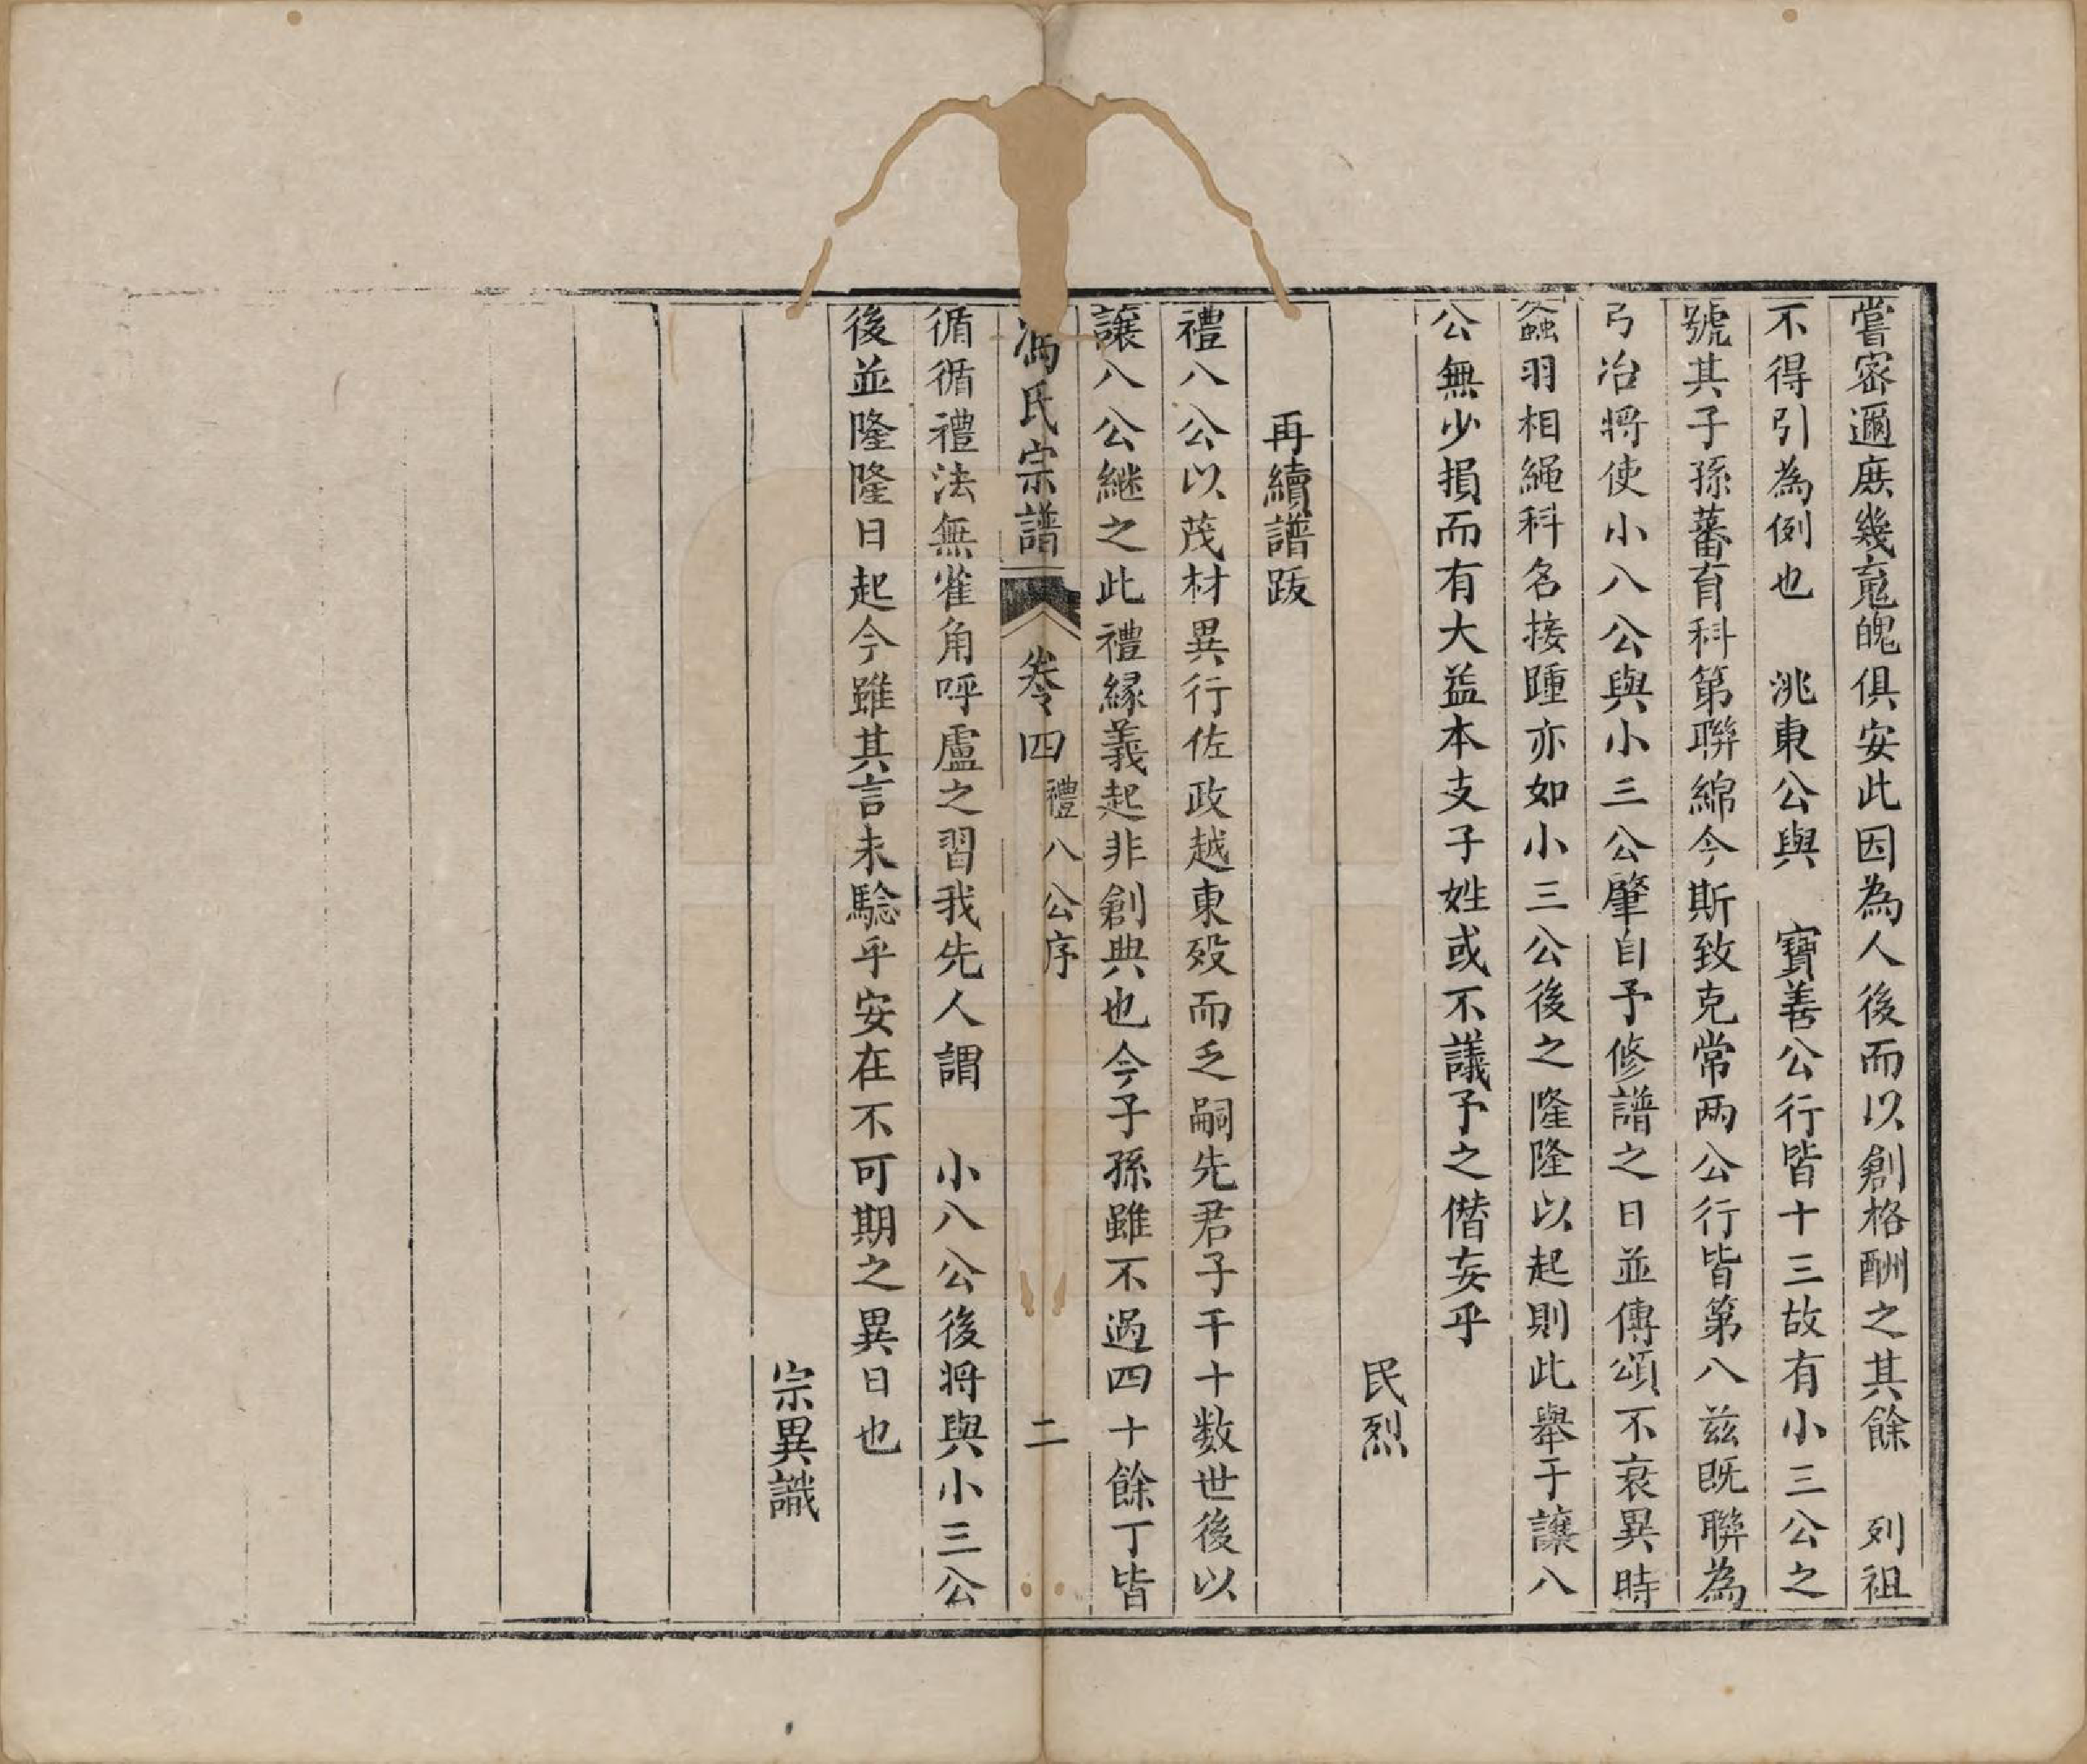 嘗密邇庶幾䰟魄俱安此因為人後而以創格酬之其餘　列祖
不得引為例也　洮東公與　寶善公行皆十三故有小三公之
號其子孫蕃育科第聯綿今斯致克常两公行皆第八兹既聯為
弓冶將使小八公與小三公肇自予修譜之日並傳頌不衰異時
螽羽相繩科名接踵亦如小三公後之隆隆以起則此舉于讓八
公無少損而有大益本支子姓或不議予之僭妄乎
民烈
再續譜跋
禮八公以茂材異行佐政越東殁而乏嗣先君子于十数世後以
讓八公継之此禮緣義起非創典也今子孫雖不過四十餘丁皆
馮氏宗譜　卷四　禮八公序　二
循循禮法無雀角呼盧之習我先人謂　小八公後將與小三公
後並隆隆日起今雖其言未驗乎安在不可期之異日也
宗異識